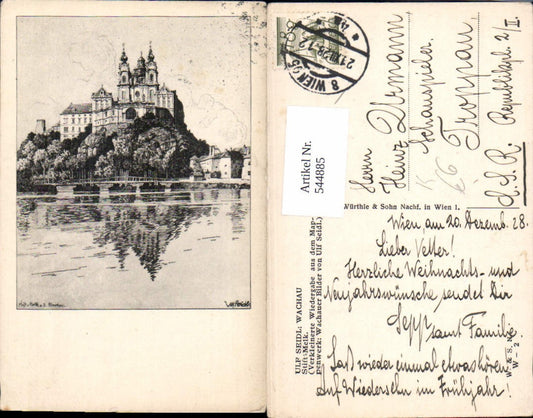 Stift Melk a. d. Donau
Ulf Seidl
8 WIEN 95
21.XII.28-12
Artikel Nr.
544885
Herrn
Heinz Ormann
Schauspieler
Troppau,
Č.S.R. Republikpl. 2/II
Würthle & Sohn Nachf. in Wien I.
ULF SEIDL: WACHAU
Stift-Melk.
(Verkleinerte Wiedergabe aus dem Map-
penwerk: Wachauer Bilder von Ulf Seidl.)
W. & S. N.
W — 2
Wien am 20. Dezemb. 28.
Lieber Vetter!
Herzliche Weihnachts- und
Neujahrswünsche sendet Dir
Sepp samt Familie.
Laß wieder einmal etwas hören
Auf Wiedersehn im Frühjahr!